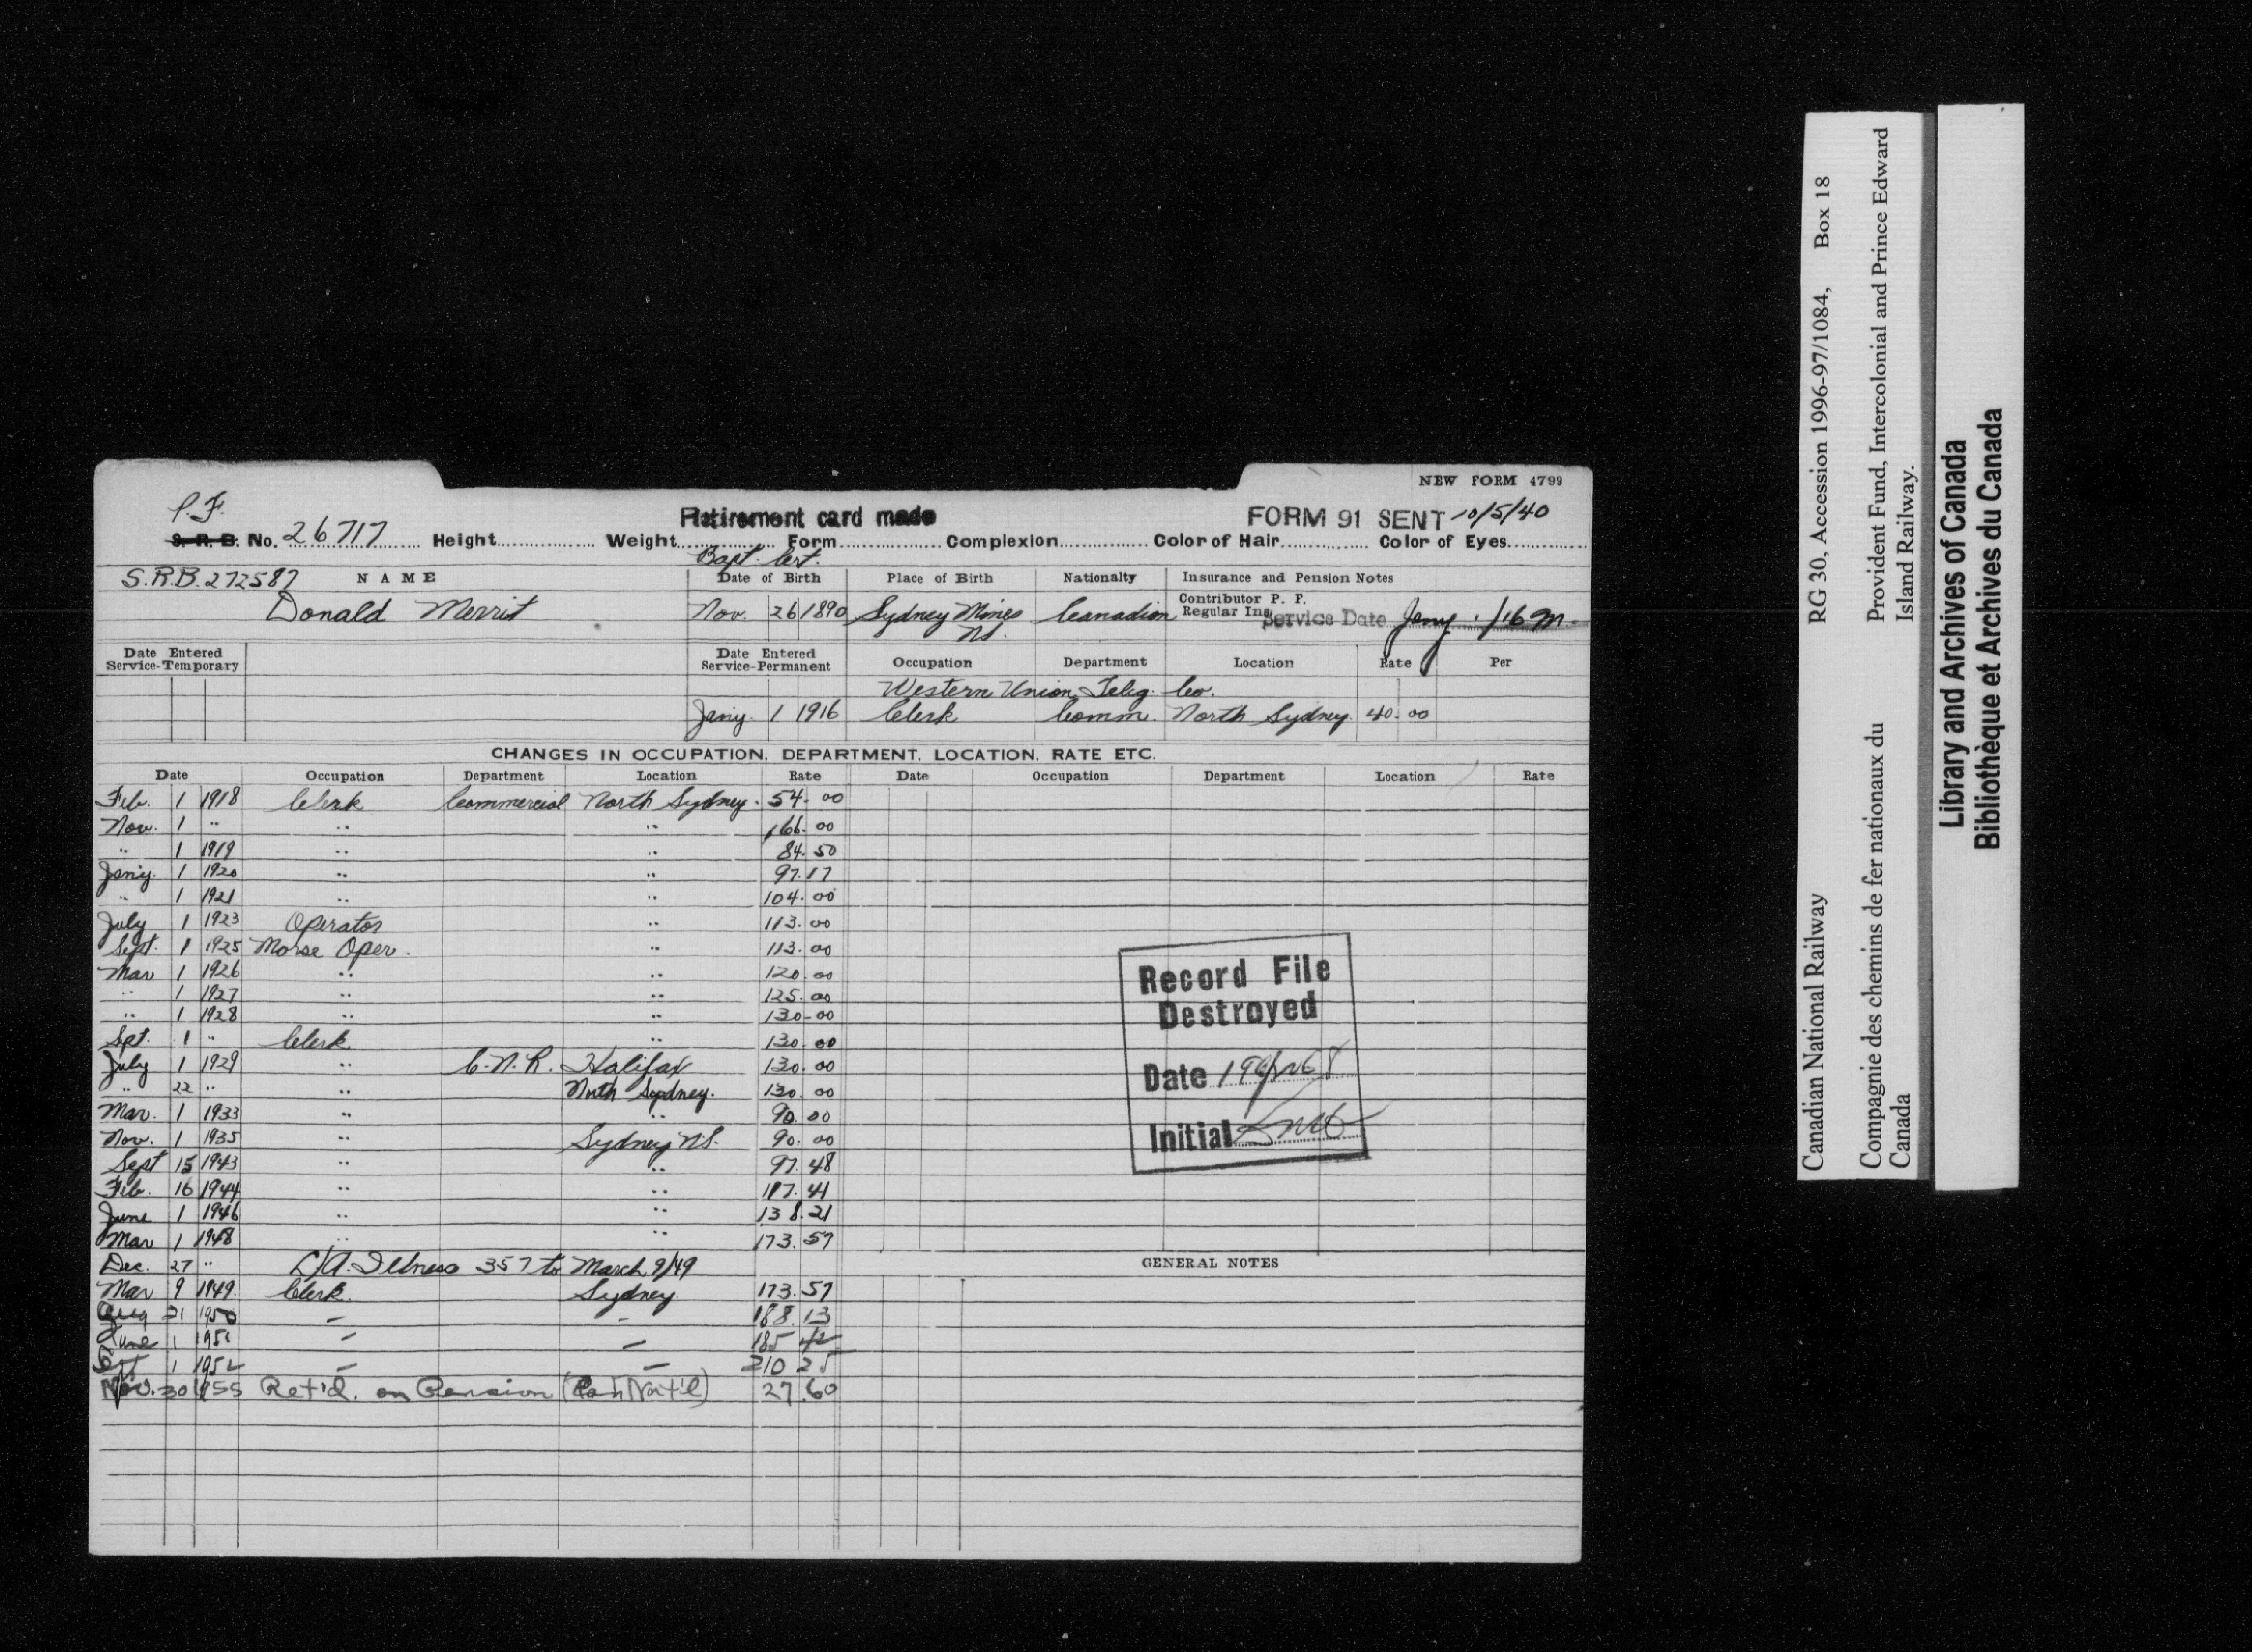 NEW FORM 4799
P.F.
Retirement card made
FORM 91 SENT 10/5/40
S. R. B. No. 26717 Height Weight Form Complexion Color of Hair Color of Eyes
Bapt. Cert.
S.R.B. 272587 NAME Date of Birth Place of Birth Nationalty Insurance and Pension Notes
Donald Merrit Nov. 26 1890 Sydney Mines N.S. Canadian Contributor P. F.
Regular Ins. Service Date Jany. 1/16 M.
Date Entered Service-Temporary Date Entered Service-Permanent Occupation Department Location Rate Per
Western Union Teleg. Co.
Jany. 1 1916 Clerk Comm. North Sydney. 40.00
CHANGES IN OCCUPATION, DEPARTMENT, LOCATION, RATE ETC.
Date Occupation Department Location Rate Date Occupation Department Location Rate
Feb. 1 1918 Clerk Commercial North Sydney. 54.00
Nov. 1 " " " 66.00
" 1 1919 " " 84.50
Jany. 1 1920 " " 97.17
" 1 1921 " " 104.00
July 1 1923 Operator " 113.00
Sept. 1 1925 Morse Oper. " 113.00
Mar 1 1926 " " 120.00
" 1 1927 " " 125.00
" 1 1928 " " 130-00
Spt. 1 " Clerk " 130.00
July 1 1929 " C.N.R. Halifax 130.00
" 22 " " North Sydney. 130.00
Mar. 1 1933 " " 90.00
Nov. 1 1935 " Sydney N.S. 90.00
Sept 15 1943 " " 97.48
Feb. 16 1944 " " 117.41
June 1 1946 " " 138.21
Mar 1 1948 " " 173.57
Dec. 27 " L/A. Illness 357 to March 9/49
Mar 9 1949 Clerk. Sydney. 173.57
Aug 21 1950 " " 188.13
June 1 1951 " " 185 42
Sept 1 1952 " " 210 25
Nov. 30 1955 Ret'd. on Pension (Can Nat'l) 27.60
Record File
Destroyed
Date 19 Apr 68
Initial
GENERAL NOTES
Canadian National Railway RG 30, Accession 1996-97/1084, Box 18
Compagnie des chemins de fer nationaux du Canada
Provident Fund, Intercolonial and Prince Edward Island Railway.
Library and Archives of Canada
Bibliothèque et Archives du Canada